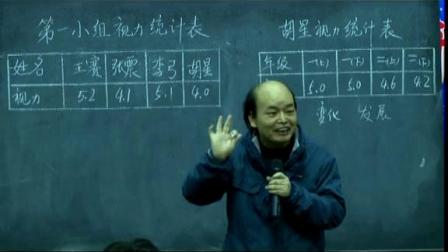 第一小组视力统计表
姓名 王赛 张震 李弓 胡星
视力 5.2 4.1 5.1 4.0
胡星视力统计表
年级 一(上) 一(下) 二(上) 二(下)
5.0 5.0 4.6 4.2
变化 发展